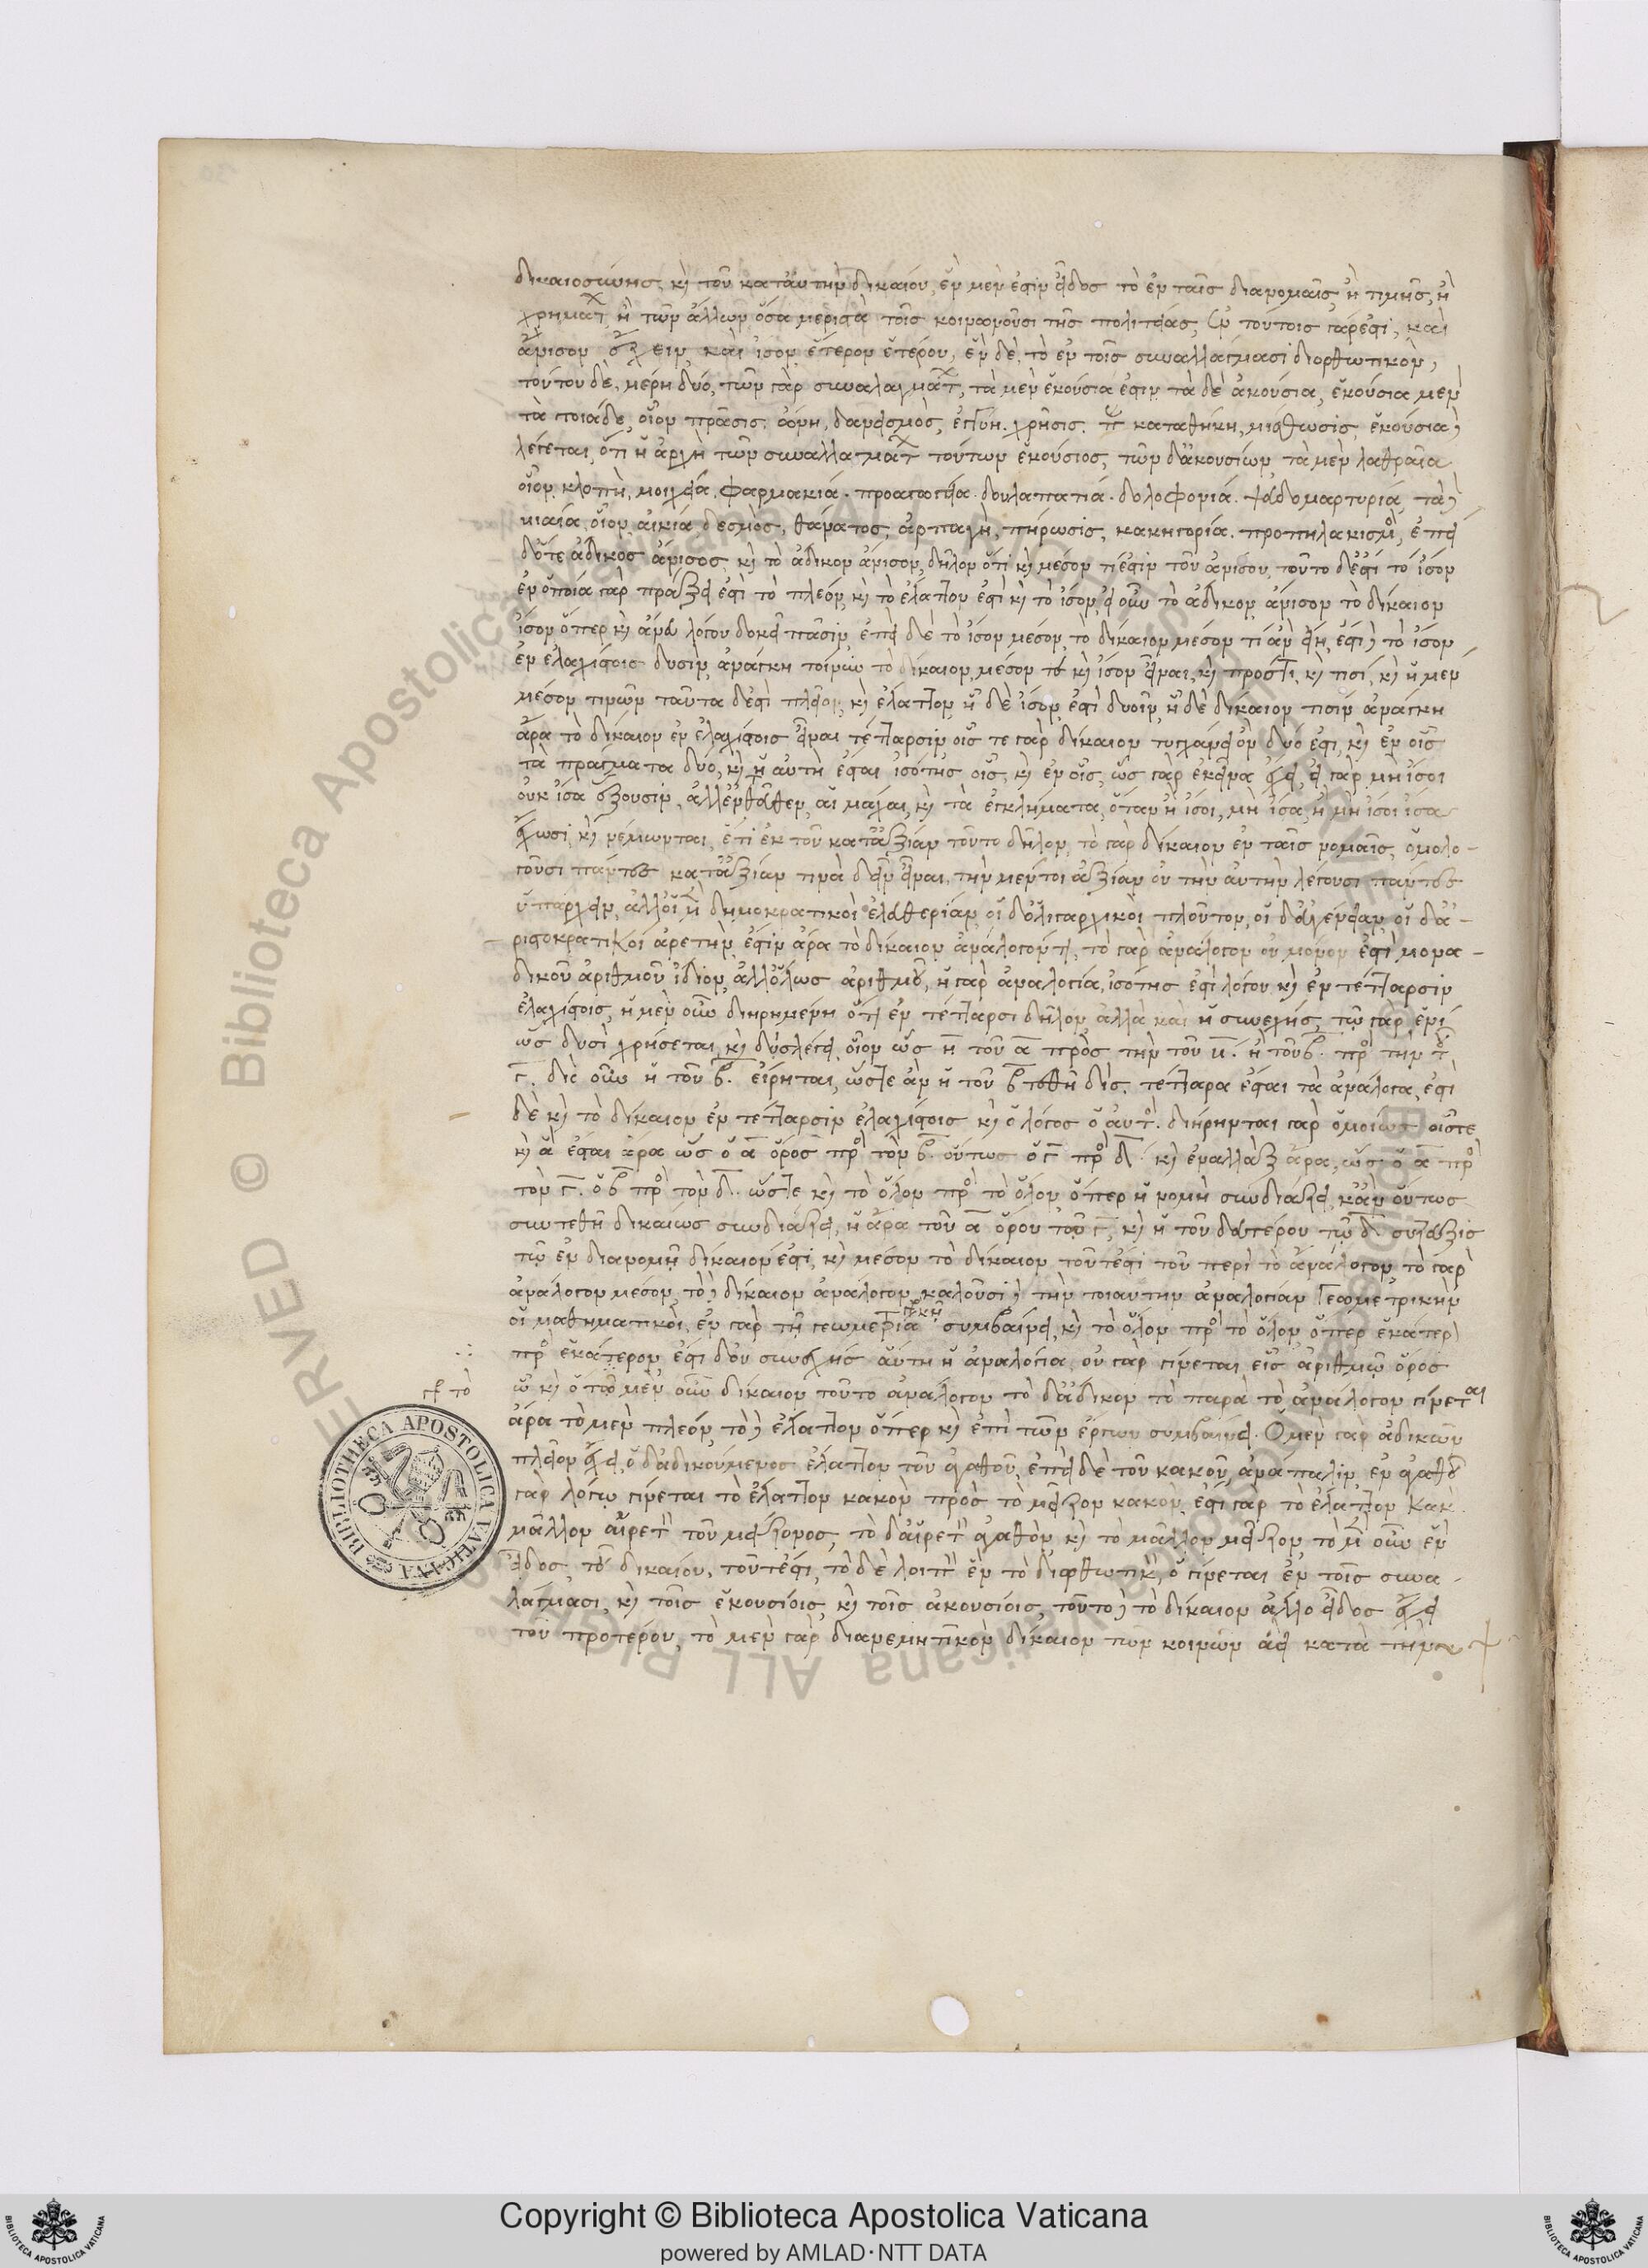 δικαιοσύνης, κὶ τοῦ κατ' αὐτὴν δικαίου, ἓν μέν ἐστιν εἶδος τὸ ἐν ταῖς διανομαῖς ἢ τιμῆς, ἢ
χρημάτων ἢ τῶν ἄλλων ὅσα μεριστὰ τοῖς κοινωνοῦσι τῆς πολιτείας, ἐν τούτοις γάρ ἐστι, καὶ
ἄνισον ἔχειν καὶ ἴσον ἕτερον ἑτέρου, ἓν δὲ τὸ ἐν τοῖς συναλλάγμασι διορθωτικὸν,
τούτου δὲ, μέρη δύο, τῶν γὰρ συναλαγμάτων, τὰ μὲν ἑκούσια ἐστιν τὰ δὲ ἀκούσια, ἑκούσια μὲν
τὰ τοιάδε, οἷον πρᾶσις, ὠνή, δανεισμὸς, ἐγγύη. χρῆσις. παρακαταθήκη, μίσθωσις, ἑκούσια δὲ
λέγεται, ὅτι ἡ ἀρχὴ τῶν συναλλαγμάτων τούτων ἑκούσιος, τῶν δ' ἀκουσίων τὰ μὲν λαθραῖα
οἷον κλοπὴ, μοιχεία, φαρμακιά. προαγωγεία. δουλαπατιά. δολοφονιά. ψευδομαρτυριά, τὰ δὲ
βιαία, οἷον αἰκιά δεσμὸς, θάνατος, ἁρπαγὴ, πήρωσις, κακηγορία. προπηλακισμὸς, ἐπεὶ
δ' ὅτε ἄδικος ἄνισος, κὶ τὸ ἄδικον ἄνισον, δῆλον ὅτι κὶ μέσον τί ἐστιν τοῦ ἀνίσου, τοῦτο δ' ἐστὶ τὸ ἴσον
ἐν ὁποία γὰρ πράξει ἐστὶ τὸ πλέον, κὶ τὸ ἔλαττον ἐστὶ κὶ τὸ ἴσον, εἰ οὖν τὸ ἄδικον ἄνισον τὸ δίκαιον
ἴσον ὅπερ κὶ ἄνευ λόγου δοκεῖ πᾶσιν, ἐπεὶ δὲ τὸ ἴσον μέσον, τὸ δίκαιον μέσον τί ἂν εἴη, ἐστὶ δὲ τὸ ἴσον
ἐν ἐλαχίστοις δυσὶν, ἀνάγκη τοίνυν τὸ δίκαιον, μέσον τε κὶ ἴσον εἶναι, κὶ πρός τι, κὶ τισί, κὶ ἡ μὲν
μέσον τινῶν ταῦτα δ' ἐστὶ πλεῖον, κὶ ἔλαττον, ἡ δὲ ἴσον, ἐστὶ δυοῖν, ἡ δὲ δίκαιον τισὶν ἀνάγκη
ἄρα τὸ δίκαιον ἐν ἐλαχίστοις εἶναι τέτταρσιν οἷς τε γὰρ δίκαιον τυγχάνει ὂν δύο ἐστι, κὶ ἐν οἷς
τὰ πράγματα δύο, κὶ ἡ αὐτὴ ἔσται ἰσότης οἷς, κὶ ἐν οἷς, ὡς γὰρ ἐκεῖνα ἔχει, εἰ γὰρ μὴ ἴσοι
οὐκ ἴσα ἕξουσιν, ἀλλ' ἐντεῦθεν, αἱ μάχαι, κὶ τὰ ἐγκλήματα, ὅταν ἢ ἴσοι, μὴ ἴσα, ἢ μὴ ἴσοι ἴσα
ἔχωσι, κὶ νέμωνται, ἔτι ἐκ τοῦ κατ' ἀξίαν τοῦτο δῆλον, τὸ γὰρ δίκαιον ἐν ταῖς νομαῖς, ὁμολο-
γοῦσι πάντες κατ' ἀξίαν τινὰ δεῖν εἶναι, τὴν μέντοι ἀξίαν οὐ τὴν αὐτὴν λέγουσι πάντες
ὑπάρχειν, ἀλλ' οἱ μὲν δημοκρατικοὶ ἐλευθερίαν, οἱ δ' ὀλιγαρχικοὶ πλοῦτον, οἱ δ' εὐγένειαν, οἱ δ' ἀ-
ριστοκρατικοί ἀρετὴν, ἐστιν ἄρα τὸ δίκαιον ἀνάλογόν τι, τὸ γὰρ ἀνάλογον οὐ μόνον ἐστὶ μονα-
δικοῦ ἀριθμοῦ ἴδιον, ἀλλ' ὅλως ἀριθμοῦ, ἡ γὰρ ἀναλογία, ἰσότης ἐστὶ λόγου κὶ ἐν τέτταρσιν
ἐλαχίστοις, ἡ μὲν οὖν διῃρημένη ὅτι ἐν τέτταρσι δῆλον ἀλλὰ καὶ ἡ συνεχής, τῷ γὰρ ἑνὶ
ὡς δυσὶ χρήσεται, κὶ δὶς λέγει, οἷον ὡς ἡ τοῦ α πρὸς τὴν τοῦ β. ἡ τοῦ β. πρὸς τὴν τοῦ
γ. δὶς οὖν ἡ τοῦ β. εἴρηται, ὥστε ἂν ἡ τοῦ β τεθῇ δὶς. τέτταρα ἔσται τὰ ἀνάλογα, ἐστὶ
δὲ κὶ τὸ δίκαιον ἐν τέτταρσιν ἐλαχίστοις κὶ ὁ λόγος ὁ αὐτὸς. διήρηνται γὰρ ὁμοίως οἷς τε
κὶ ἅ ἔσται ἄρα ὡς ὁ α ὅρος πρὸς τὸν β. οὕτως ὁ γ πρὸς δ. κὶ ἐναλλὰξ ἄρα, ὡς ὁ α πρὸς
τὸν γ. ὁ β πρὸς τὸν δ. ὥστε κὶ τὸ ὅλον πρὸς τὸ ὅλον, ὅπερ ἡ νομὴ συνδιάζει, κἂν οὕτως
συντεθῇ δικαίως συνδιάζει, ἡ ἄρα τοῦ α ὅρου τοῦ γ, κὶ ἡ τοῦ δευτέρου τῷ δ σύζευξις
τῷ ἐν διανομῇ δίκαιόν ἐστι, κὶ μέσον τὸ δίκαιον τοῦτ' ἐστὶ τοῦ περὶ τὸ ἀνάλογον, τὸ γὰρ
ἀνάλογον μέσον, τὸ δὲ δίκαιον ἀνάλογον, καλοῦσι δὲ τὴν τοιαύτην ἀναλογίαν γεωμετρικὴν
οἱ μαθηματικοὶ, ἐν γὰρ τῇ γεωμετρία συμβαίνει, κὶ τὸ ὅλον πρὸς τὸ ὅλον, ὅπερ ἑκάτερον
πρὸς ἑκάτερον, ἐστι δ' οὐ συνεχής αὕτη ἡ ἀναλογία, οὐ γὰρ γίνεται εἷς ἀριθμῷ ὅρος
ᾧ κὶ ὃ τὸ μὲν οὖν δίκαιον τοῦτο ἀνάλογον τὸ δ' ἄδικον τὸ παρὰ τὸ ἀνάλογον γίνεται
ἄρα τὸ μὲν πλέον, τὸ δὲ ἔλαττον ὅπερ κὶ ἐπὶ τῶν ἔργων συμβαίνει. Ὁ μὲν γὰρ ἀδικῶν
πλεῖον ἔχει, ὁ δ' ἀδικούμενος ἔλαττον τοῦ ἀγαθοῦ, ἐπεὶ δὲ τοῦ κακοῦ, ἀνάπαλιν, ἐν ἀγαθοῦ
γὰρ λόγῳ γίνεται τὸ ἔλαττον κακὸν πρὸς τὸ μεῖζον κακὸν, ἐστι γὰρ τὸ ἔλαττον κακὸν
μᾶλλον αἱρετὸν τοῦ μείζονος, τὸ δ' αἱρετὸν ἀγαθὸν κὶ τὸ μᾶλλον μεῖζον τὸ μὲν οὖν ἓν
εἶδος τοῦ δικαίου, τοῦτ' ἐστι, τὸ δὲ λοιπὸν ἓν τὸ διορθωτικὸν, ὃ γίνεται ἐν τοῖς συνα-
λάγμασι, κὶ τοῖς ἑκουσίοις, κὶ τοῖς ἀκουσίοις, τοῦτο δὲ τὸ δίκαιον ἄλλο εἶδος ἔχει
τοῦ προτέρου, τὸ μὲν γὰρ διανεμητικὸν δίκαιον τῶν κοινῶν ἀεὶ κατὰ τὴν
BIBLIOTHECA APOSTOLICA VATICANA
© Biblioteca Apostolica Vaticana ALL RIGHTS RESERVED
Copyright © Biblioteca Apostolica Vaticana
powered by AMLAD·NTT DATA